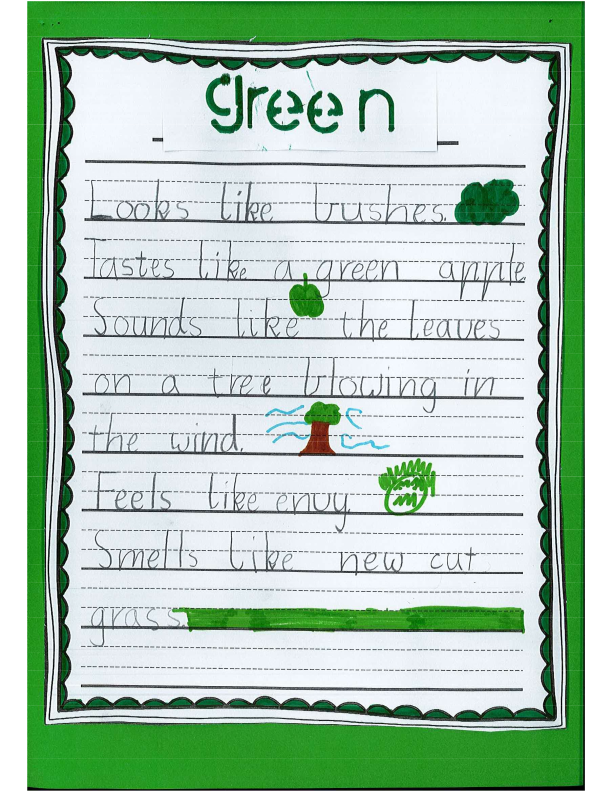 green
Looks like bushes.
Tastes like a green apple
Sounds like the leaves
on a tree blowing in
the wind.
Feels like envy.
Smells like new cut
grass.